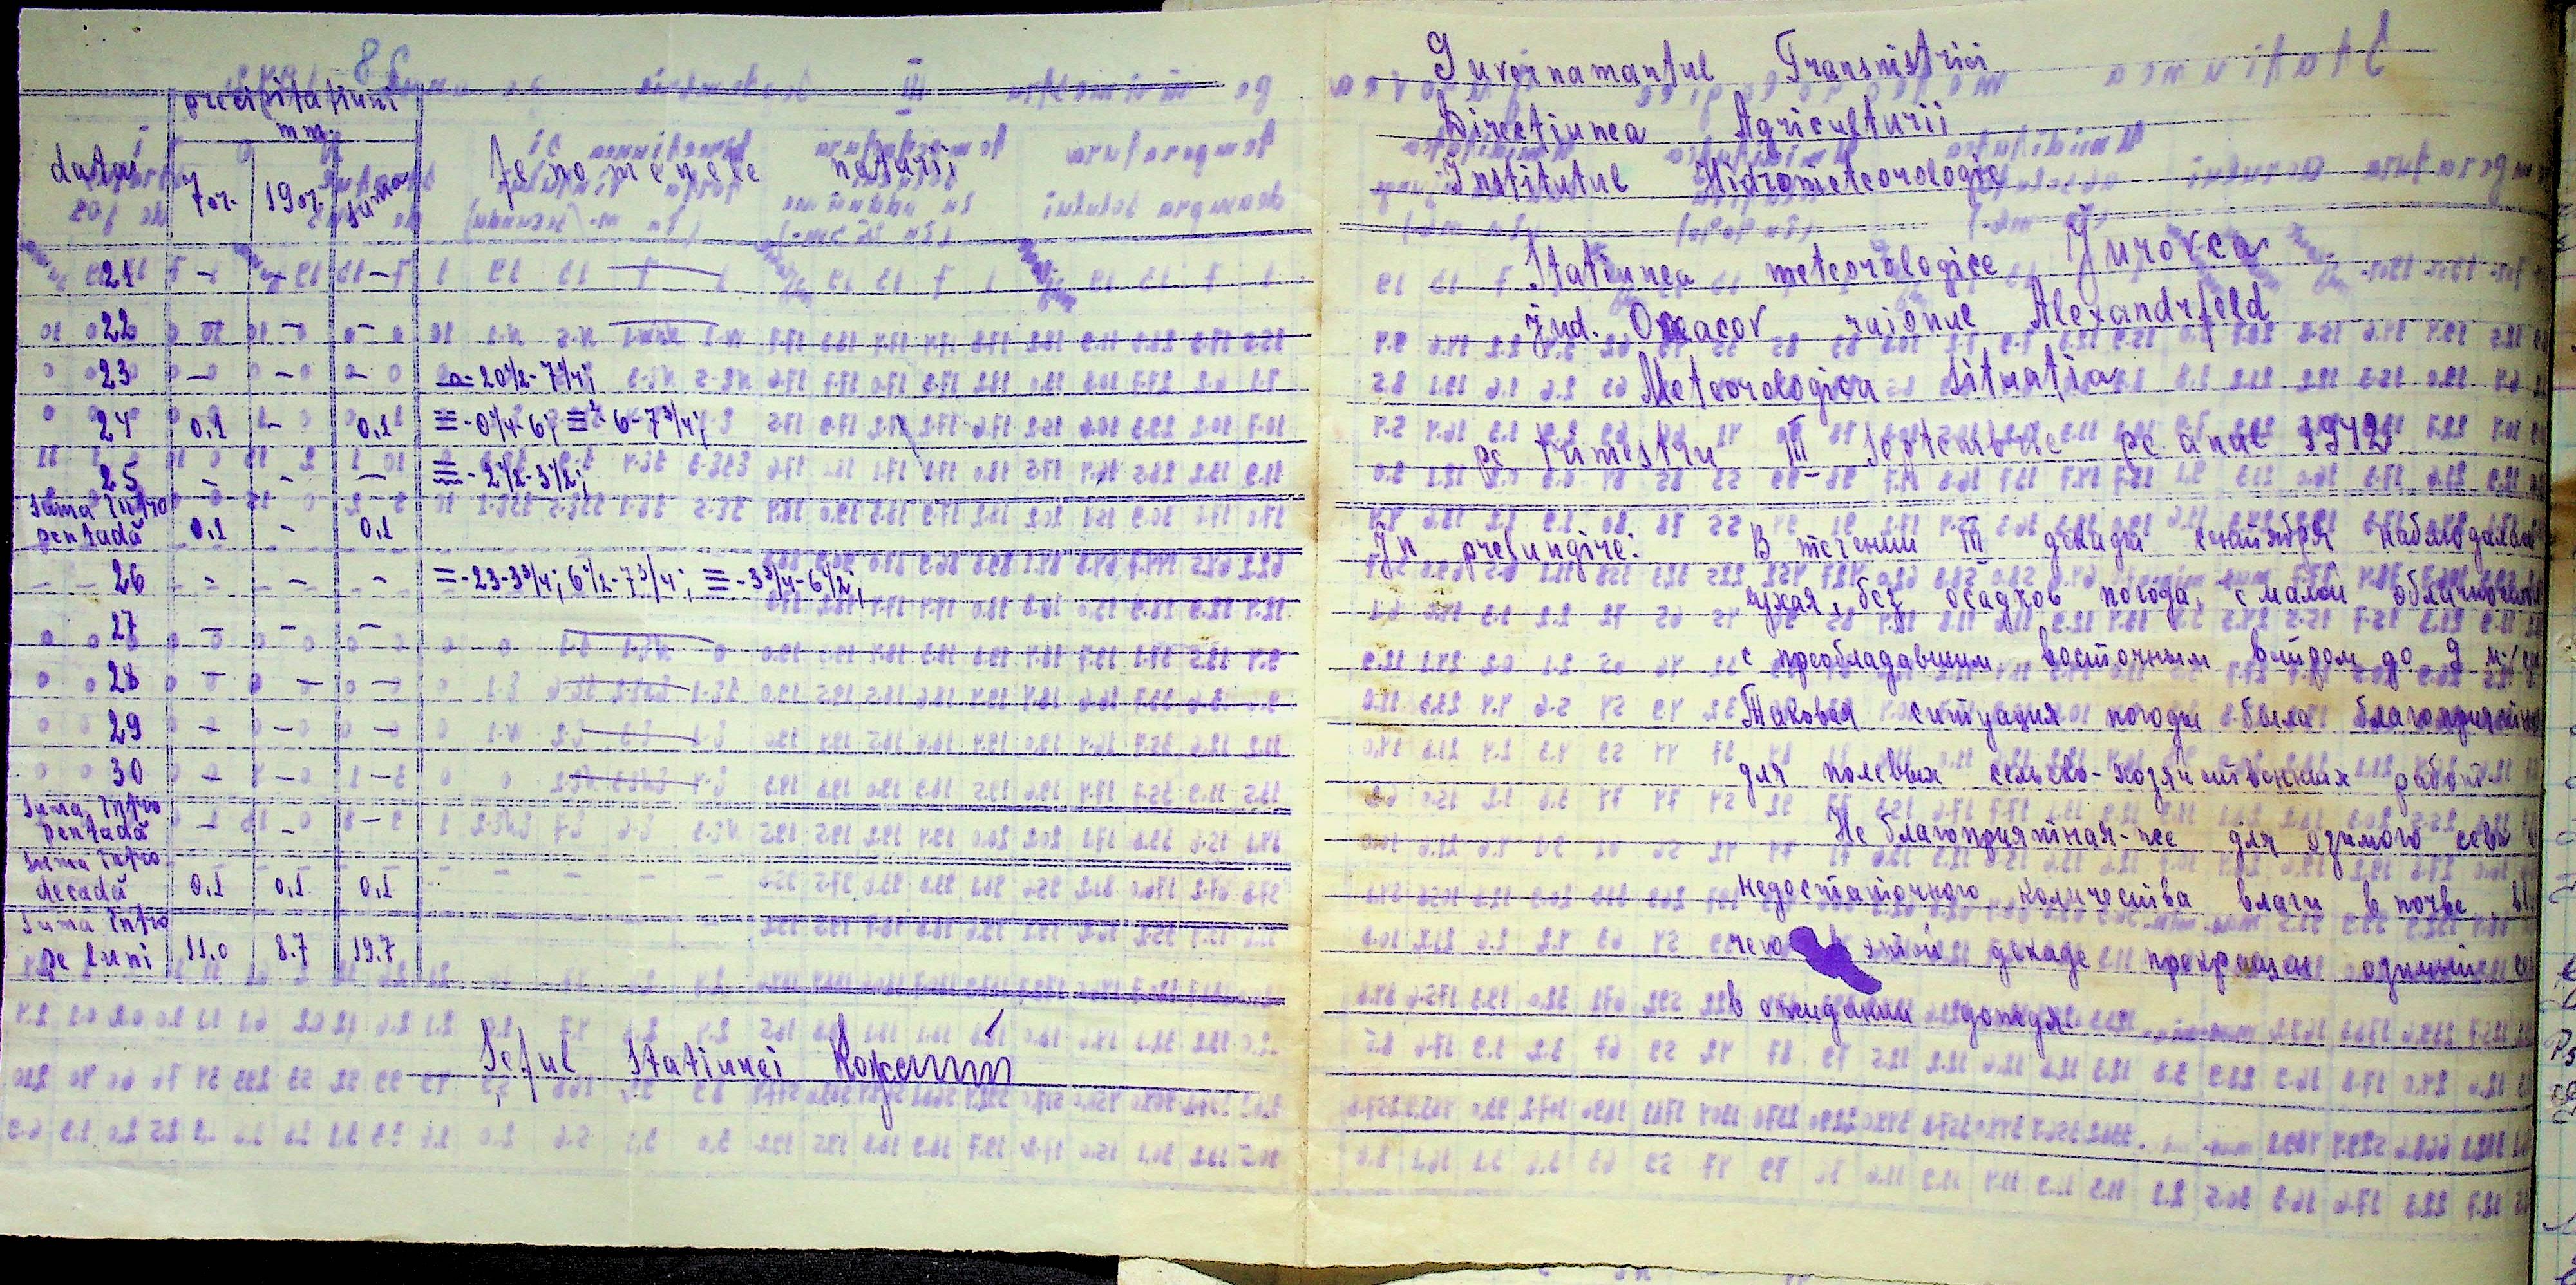 86
precipitațiuni
mm.
datas
7 or. 19 or. suma
fenomenele naturii
21 — — —
22 — — —
23 — — — 20½-7¼;
24 0,1 — 0,1 ≡-0¼-6; ≡² 6-7¾;
25 — — — ≡-2½-3½;
suma intro
pentadă 0,1 - 0,1
26 - - - ≡-23-3¾; 6½-7¾; ≡-3¾-6½;
27 — — —
28 — — —
29 — — —
30 — — —
suma intro
pentadă — — —
suma intro
decadă 0,1 0,1 0,1
suma intro
pe luni 11.0 8.7 19.7
Șeful Statiunei
Guvernamantul Transnistriei
Direcțiunea Agriculturii
Institutul Hidrometeorologic
Stațiunea meteorologice Jurovca
Jud. Oceacov raionul Alexandrfeld
Meteorologica situația
pe trimestru III Septembrie pe anul 1942
In prelungire: В течении III декады сентября наблюдалась
сухая, без осадков погода, с малой облачностью
с преобладавшим восточным ветром до 9 м/сек
Таковая ситуация погоды была благоприятна
для полевых сельско-хозяйственных работ.
Не благоприятная-же для озимого сева
недостаточного количества влаги в почве,
чего в этой декаде прекращен озимый
в ожидании дождя.